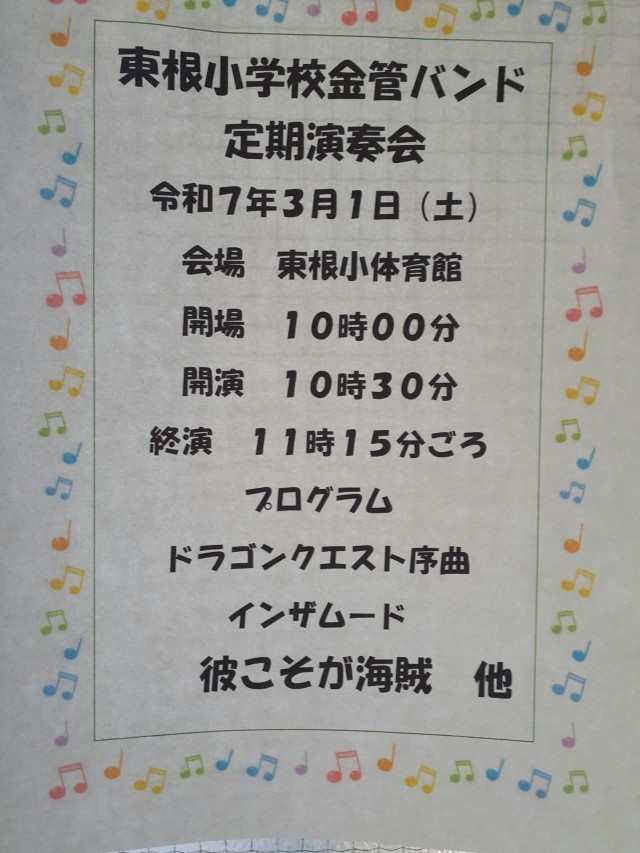 東根小学校金管バンド
定期演奏会
令和7年3月1日（土）
会場　東根小体育館
開場　10時00分
開演　10時30分
終演　11時15分ごろ
プログラム
ドラゴンクエスト序曲
インザムード
彼こそが海賊　他